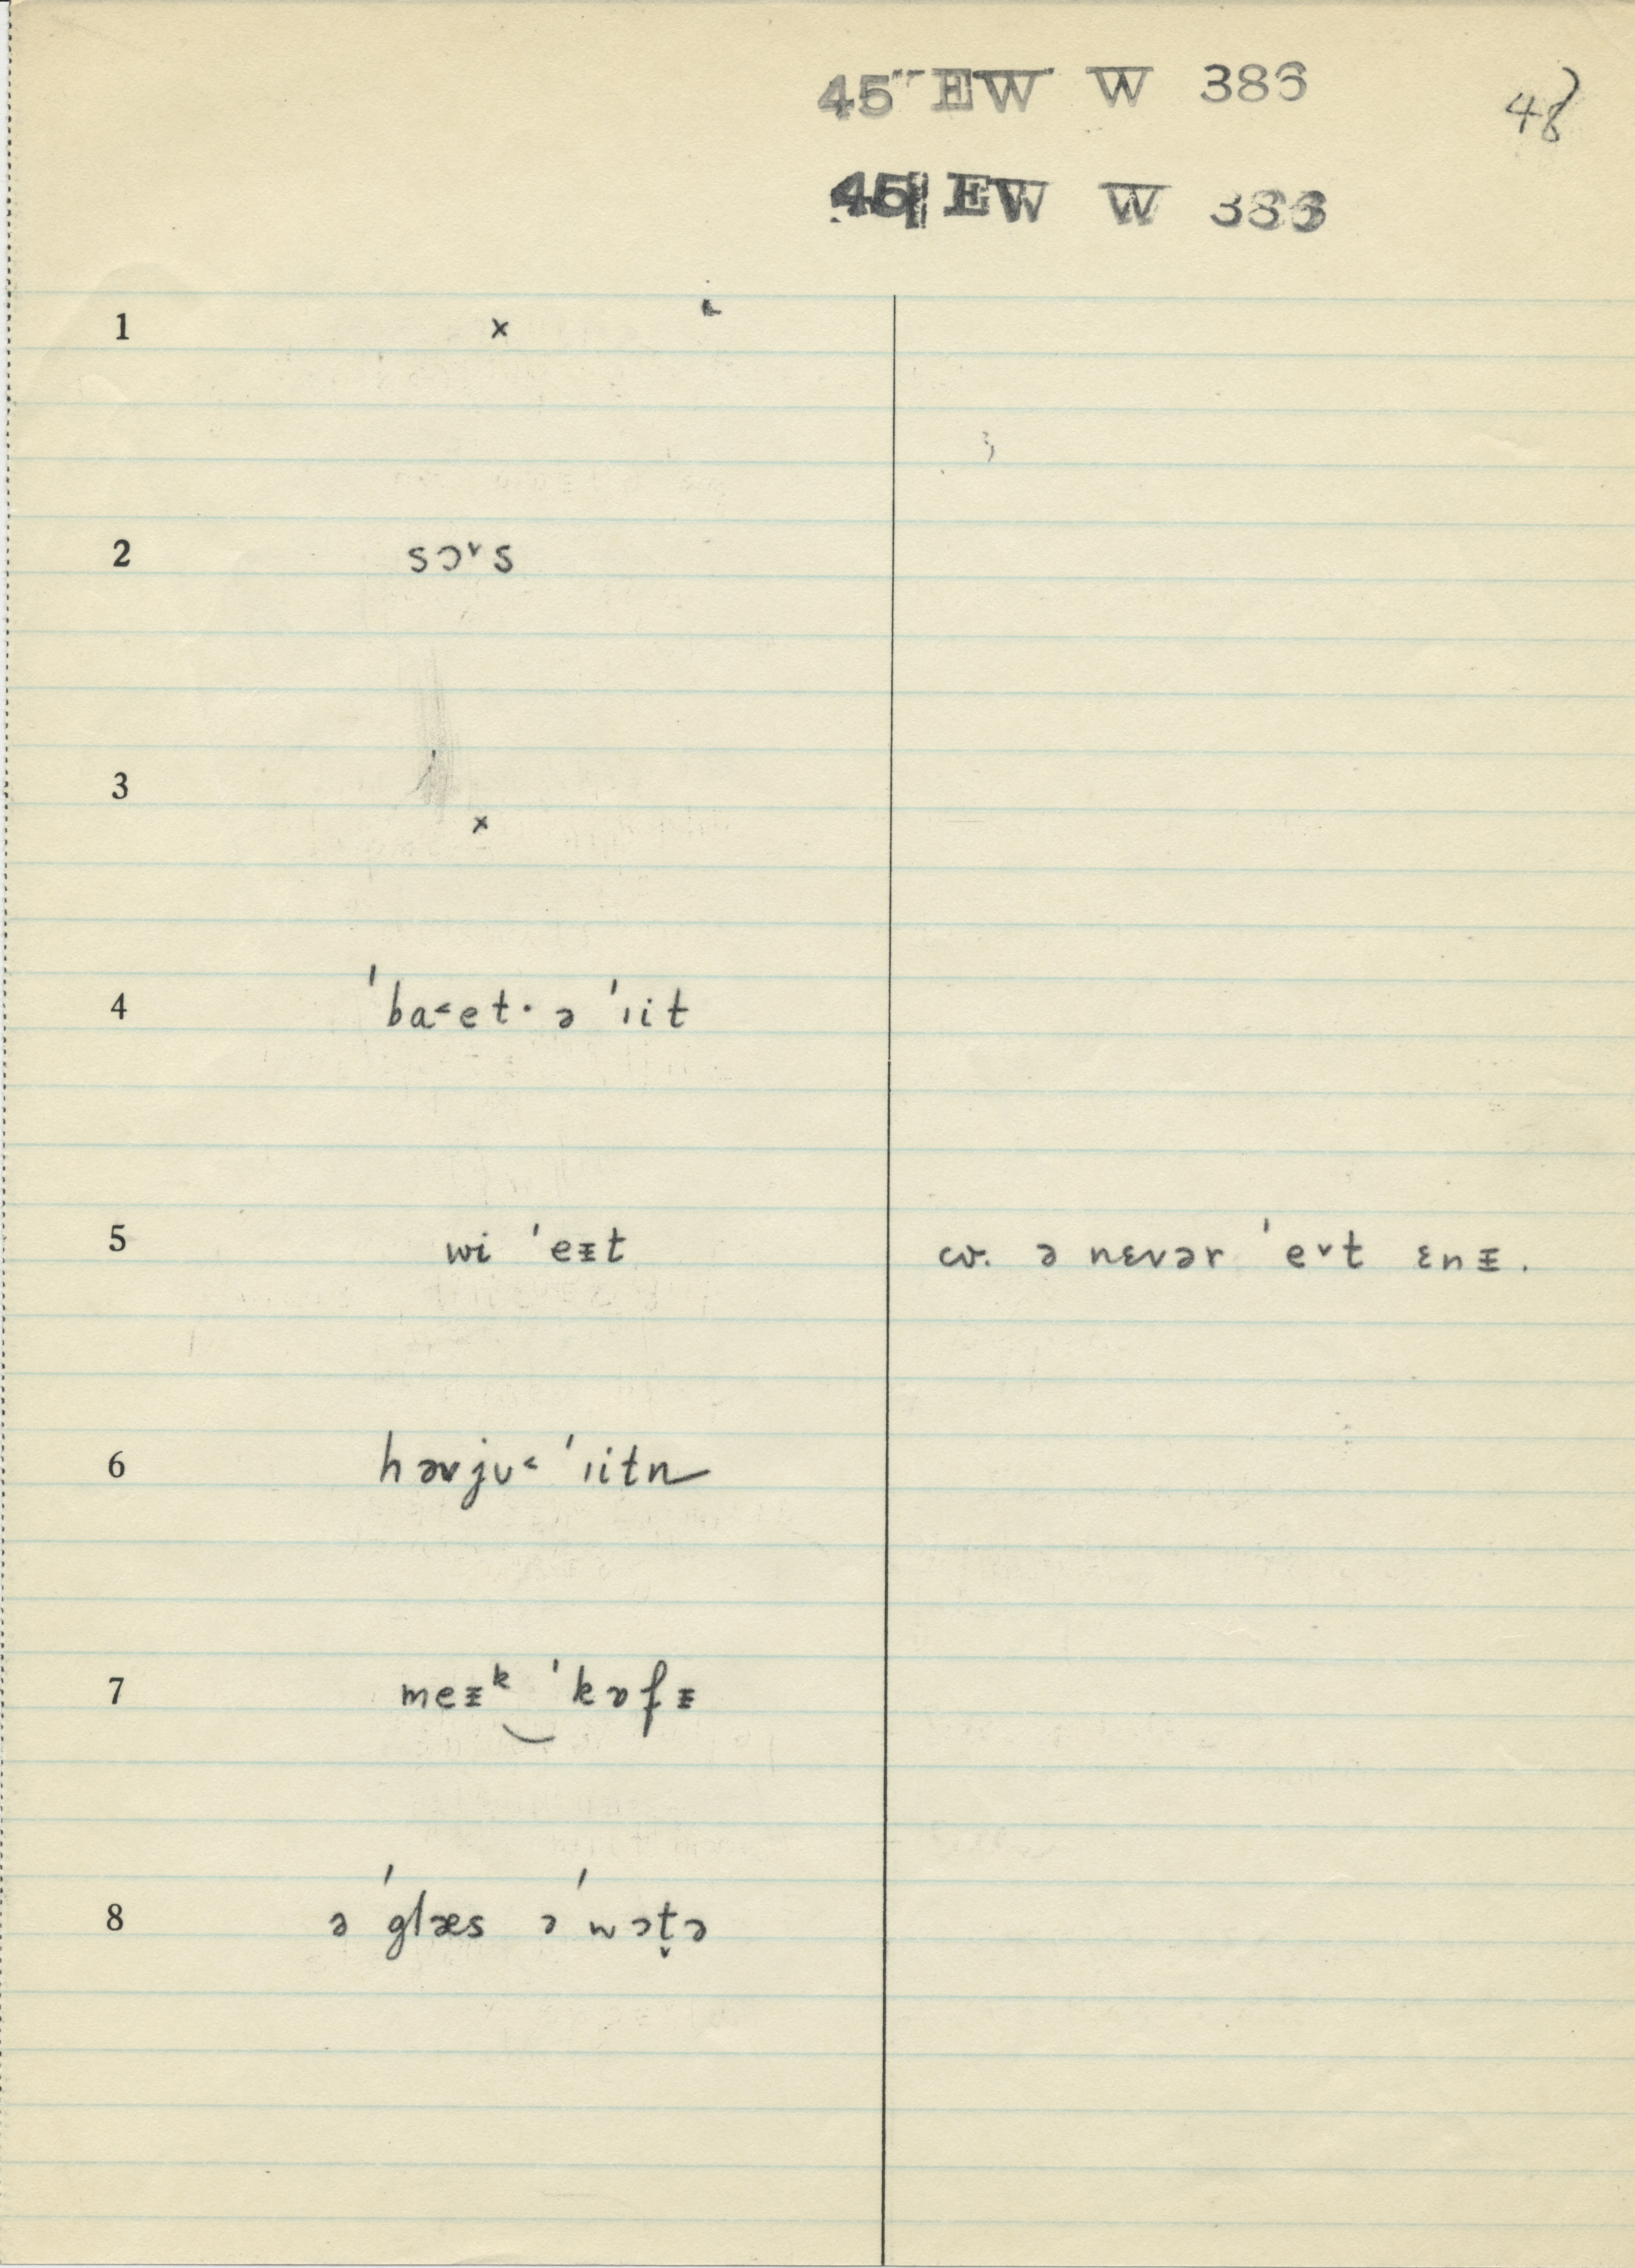 45 EW W 386
48
45 EW W 386
1 x
2 sɔ˅s
3 x
4 ˈba˂et· ə ˈıit
5 wi ˈeᵻt cv. ə nɛvər ˈe˅t ɛnᵻ.
6 həvju˂ ˈıitn
7 meᵻᵏ‿ˈkɒfᵻ
8 ə ˈglæs ə ˈwɔt̬ə